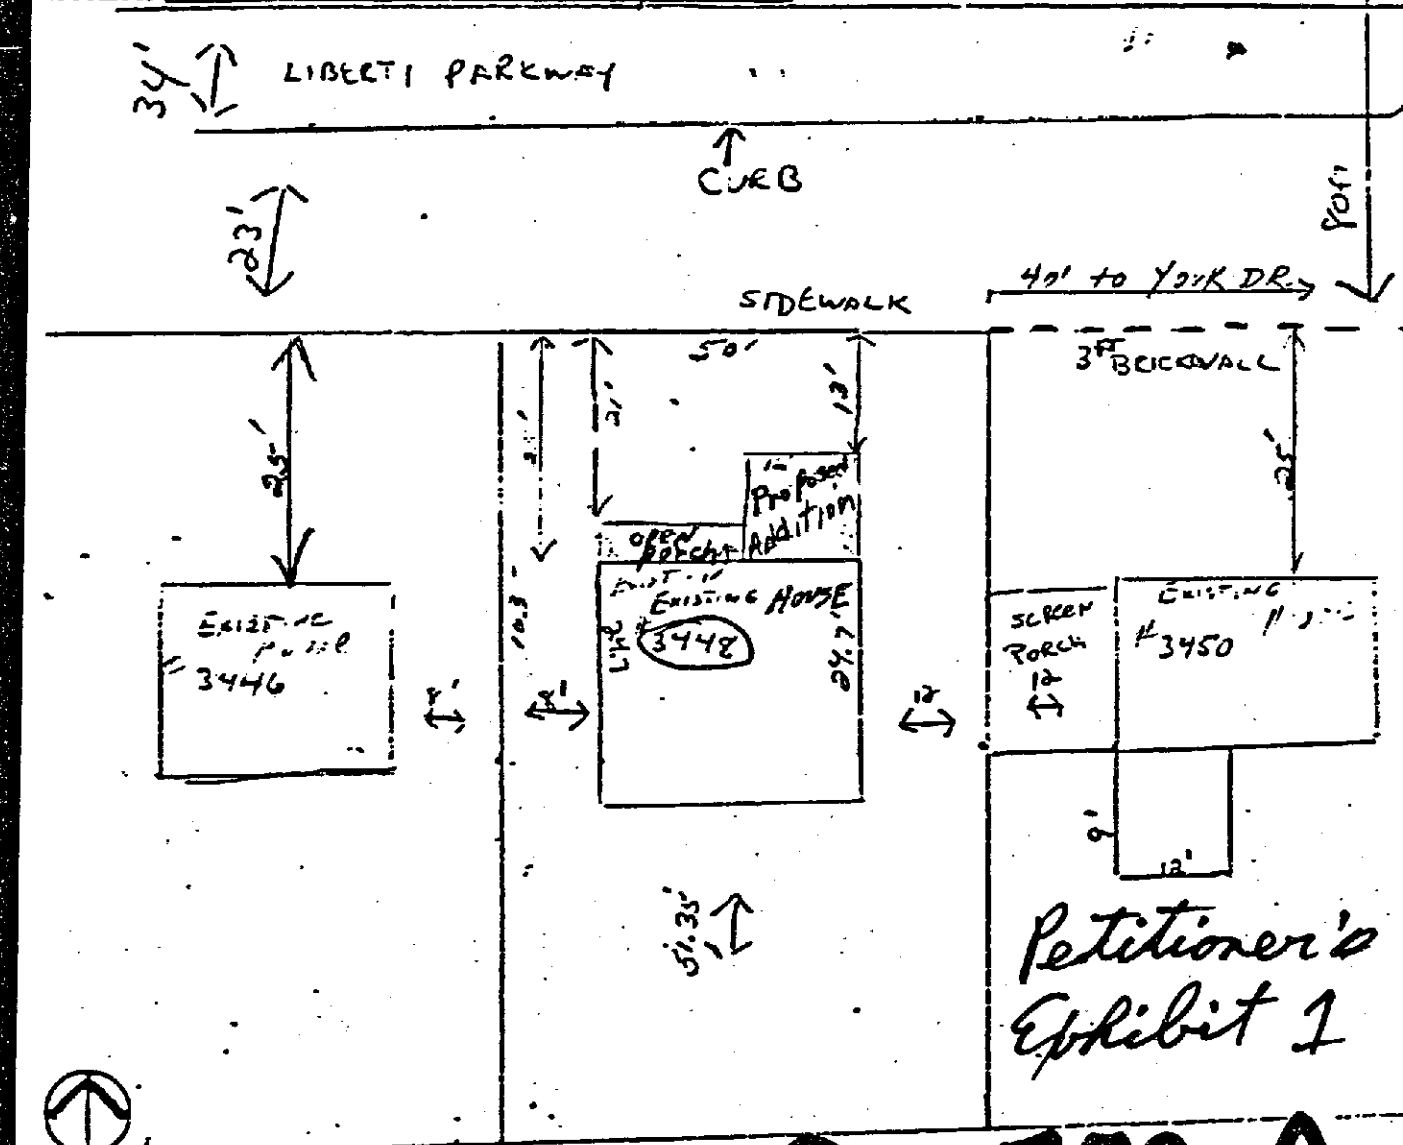 34'
LIBERTY PARKWAY
CURB
23'
80ft
40' to YORK DR.
SIDEWALK
50'
3FT BRICKWALL
25'
21'
13'
25'
Proposed
Addition
OPEN
PORCH
EXISTING HOUSE
#3448
24.7'
24.7'
EXISTING
House
#3446
8'
8'
12
SCREEN
PORCH
12
EXISTING
#3450
9'
12'
51.35'
Petitioner's
Exhibit 1